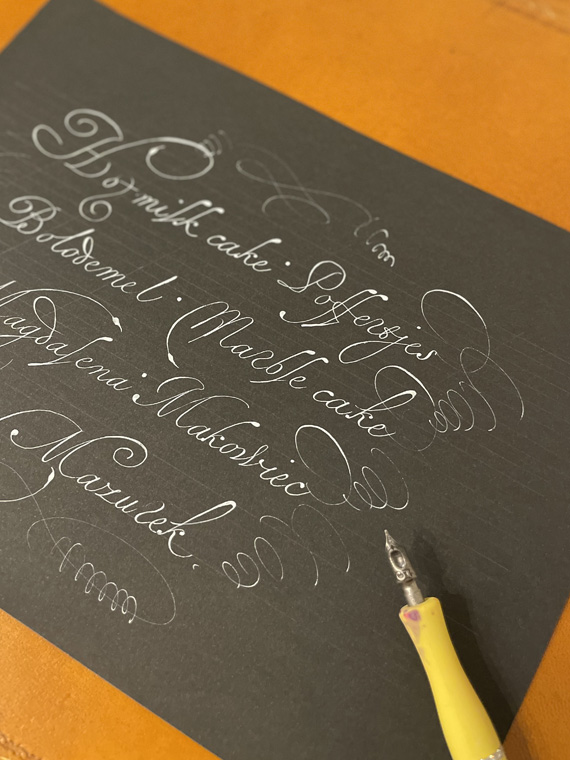 Hot milk cake · Poffertjes
Bolodemel · Marble cake
Magdalena · Makowiec
Mazurek.